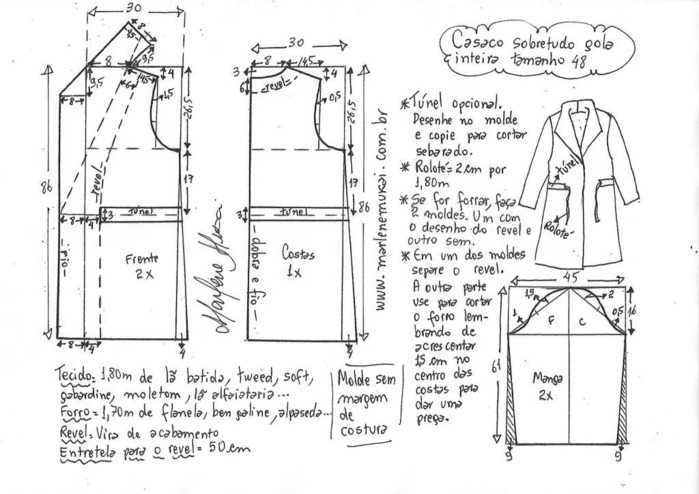 30
8
15
9,5
8
9,5
14,5
6
4
1,5
26,5
86
8
revel
17
3
túnel
8
4
fio
Frente
2x
8
4
4
Marlene Mukai
30
3
8
14,5
4
6
revel
0,5
26,5
17
86
3
túnel
dobra e fio
Costas
1x
4
www.marlenemukai.com.br
Casaco sobretudo gola
inteira tamanho 48
* Túnel opcional.
Desenhe no molde
e copie para cortar
separado.
* Rolotê = 2 cm por
1,80m
* Se for forrar, faça
2 moldes. Um com
o desenho do revel e
outro sem.
* Em um dos moldes
separe o revel.
A outra parte
use para cortar
o forro lem-
brando de
acrescentar
15 cm no
centro das
costas para
dar uma
prega.
túnel
Rolotê
45
1,5
2
1
0,5
16
F
C
61
Manga
2x
9
9
Tecido = 1,80m de lã batida, tweed, soft,
gabardine, moletom, lã alfaiataria...
Forro = 1,70m de flanela, bengaline, alpaseda...
Revel = Vira de acabamento
Entretela para o revel = 50 cm
Molde sem
margem
de
costura